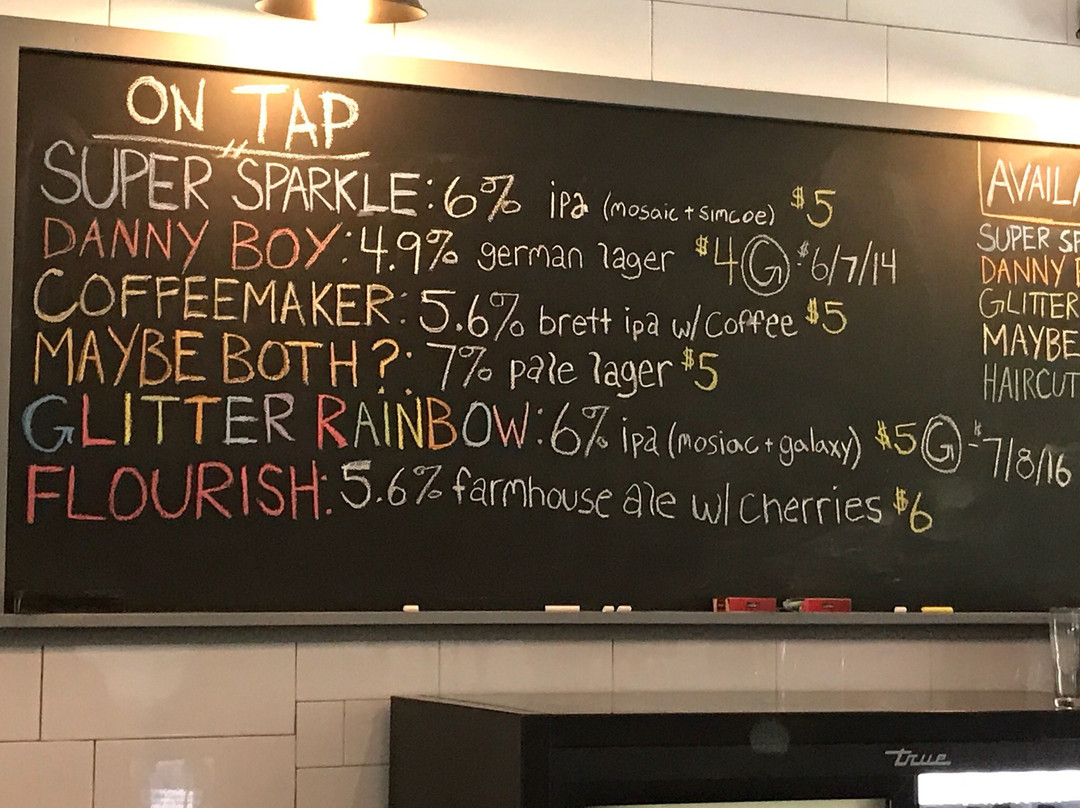 ON TAP
SUPER SPARKLE: 6% ipa (mosaic + simcoe) $5
DANNY BOY: 4.9% german lager $4 G: $6/7/14
COFFEEMAKER: 5.6% brett ipa w/ Coffee $5
MAYBE BOTH?: 7% pale lager $5
GLITTER RAINBOW: 6% ipa (mosiac + galaxy) $5 G - $7/8/16
FLOURISH: 5.6% farmhouse ale w/ Cherries $6
AVAILA
SUPER SP
DANNY B
GLITTER
MAYBE
HAIRCUT
true